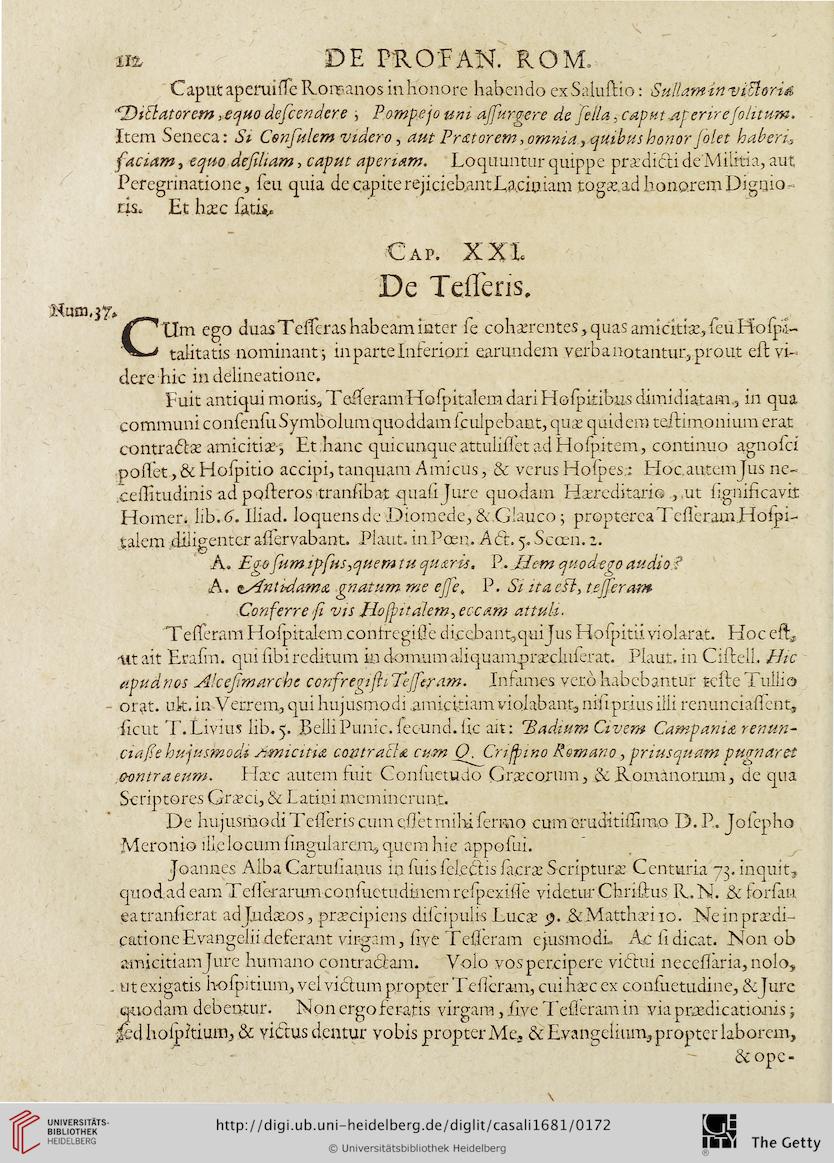 112 DE PROFAN. ROM.
Caput aperuiſſe Romanos in honore habendo ex Saluſtio: Sullam in victoria
Dictatorem, equo deſcendere ; Pompejo uni aſſurgere de ſella, caput aperire ſolitum.
Item Seneca: Si Conſulem videro, aut Prætorem, omnia, quibus honor ſolet haberi,
faciam, equo deſiliam, caput aperiam. Loquuntur quippe prædicti de Militia, aut
Peregrinatione, ſeu quia de capite rejiciebant Laciniam togæ ad honorem Dignio-
ris. Et hæc ſatis.
CAP. XXI.
De Teſſeris.
Num. 37.
CUm ego duas Teſſeras habeam inter ſe cohærentes, quas amicitiæ, ſeu Hoſpi-
talitatis nominant; in parte Inferiori earundem verba notantur, prout eſt vi-
dere hic in delineatione.
Fuit antiqui moris, Teſſeram Hoſpitalem dari Hoſpitibus dimidiatam, in qua
communi conſenſu Symbolum quoddam ſculpebant, quæ quidem teſtimonium erat
contractæ amicitiæ; Et hanc quicunque attuliſſet ad Hoſpitem, continuo agnoſci
poſſet, & Hoſpitio accipi, tanquam Amicus, & verus Hoſpes: Hoc autem Jus ne-
ceſſitudinis ad poſteros tranſibat quaſi Jure quodam Hæreditario, ut ſignificavit
Homer. lib. 6. Iliad. loquens de Diomede, & Glauco; propterea Teſſeram Hoſpi-
talem diligenter aſſervabant. Plaut. in Pœn. Act. 5. Scœn. 2.
A. Ego ſum ipſus, quem tu quæris. P. Hem quod ego audio?
A. Antidamæ gnatum me eſſe. P. Si ita eſt, teſſeram
Conferre ſi vis Hoſpitalem, eccam attuli.
Teſſeram Hoſpitalem confregiſſe dicebant, qui Jus Hoſpitii violarat. Hoc eſt,
ut ait Eraſm. qui ſibi reditum in domum aliquam præcluſerat. Plaut. in Ciſtell. Hic
apud nos Alceſimarche confregiſti Teſſeram. Infames verò habebantur teſte Tullio
orat. ult. in Verrem, qui hujusmodi amicitiam violabant, niſi prius illi renunciaſſent,
ſicut T. Livius lib. 5. Belli Punic. ſecund. ſic ait: Badium Civem Campaniæ renun-
ciaſſe hujusmodi Amicitiæ contractæ cum Q. Criſpino Romano, priusquam pugnaret
contra eum. Hæc autem fuit Conſuetudo Græcorum, & Romanorum, de qua
Scriptores Græci, & Latini meminerunt.
De hujusmodi Teſſeris cum eſſet mihi ſermo cum eruditiſſimo D. P. Joſepho
Meronio ille locum ſingularem, quem hic appoſui.
Joannes Alba Cartuſianus in ſuis ſelectis ſacræ Scripturæ Centuria 73. inquit,
quod ad eam Teſſerarum conſuetudinem reſpexiſſe videtur Chriſtus R. N. & forſan
ea tranſierat ad Judæos, præcipiens diſcipulis Lucæ 9. & Matthæi 10. Ne in prædi-
catione Evangelii deferant virgam, ſive Teſſeram ejusmodi. Ac ſi dicat. Non ob
amicitiam Jure humano contractam. Volo vos percipere victui neceſſaria, nolo,
ut exigatis hoſpitium, vel victum propter Teſſeram, cui hæc ex conſuetudine, & Jure
quodam debentur. Non ergo feratis virgam, ſive Teſſeram in via prædicationis;
ſed hoſpitium, & victus dentur vobis propter Me, & Evangelium, propter laborem,
& ope-
UNIVERSITÄTS-
BIBLIOTHEK
HEIDELBERG
http://digi.ub.uni-heidelberg.de/diglit/casali1681/0172
© Universitätsbibliothek Heidelberg
GETTY
®
The Getty